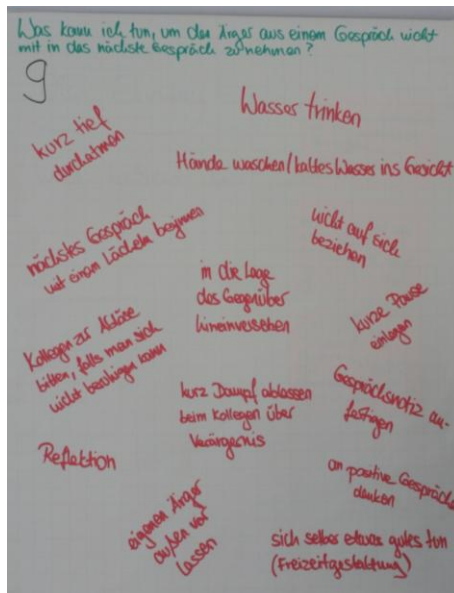 Was kann ich tun, um den Ärger aus einem Gespräch nicht
mit in das nächste Gespräch zu nehmen?
9
Wasser trinken
kurz tief
durchatmen
Hände waschen/kaltes Wasser ins Gesicht
nächstes Gespräch
mit einem Lächeln beginnen
nicht auf sich
beziehen
in die Lage
des Gegenüber
hineinversehen
kurze Pause
einlegen
Kollegen zur Ablöse
bitten, falls man sich
nicht beruhigen kann
kurz Dampf ablassen
beim Kollegen über
Verärgernis
Gesprächsnotiz an-
fertigen
Reflektion
an positive Gespräche
denken
eigenen Ärger
außen vor
lassen
sich selber etwas gutes tun
(Freizeitgestaltung)